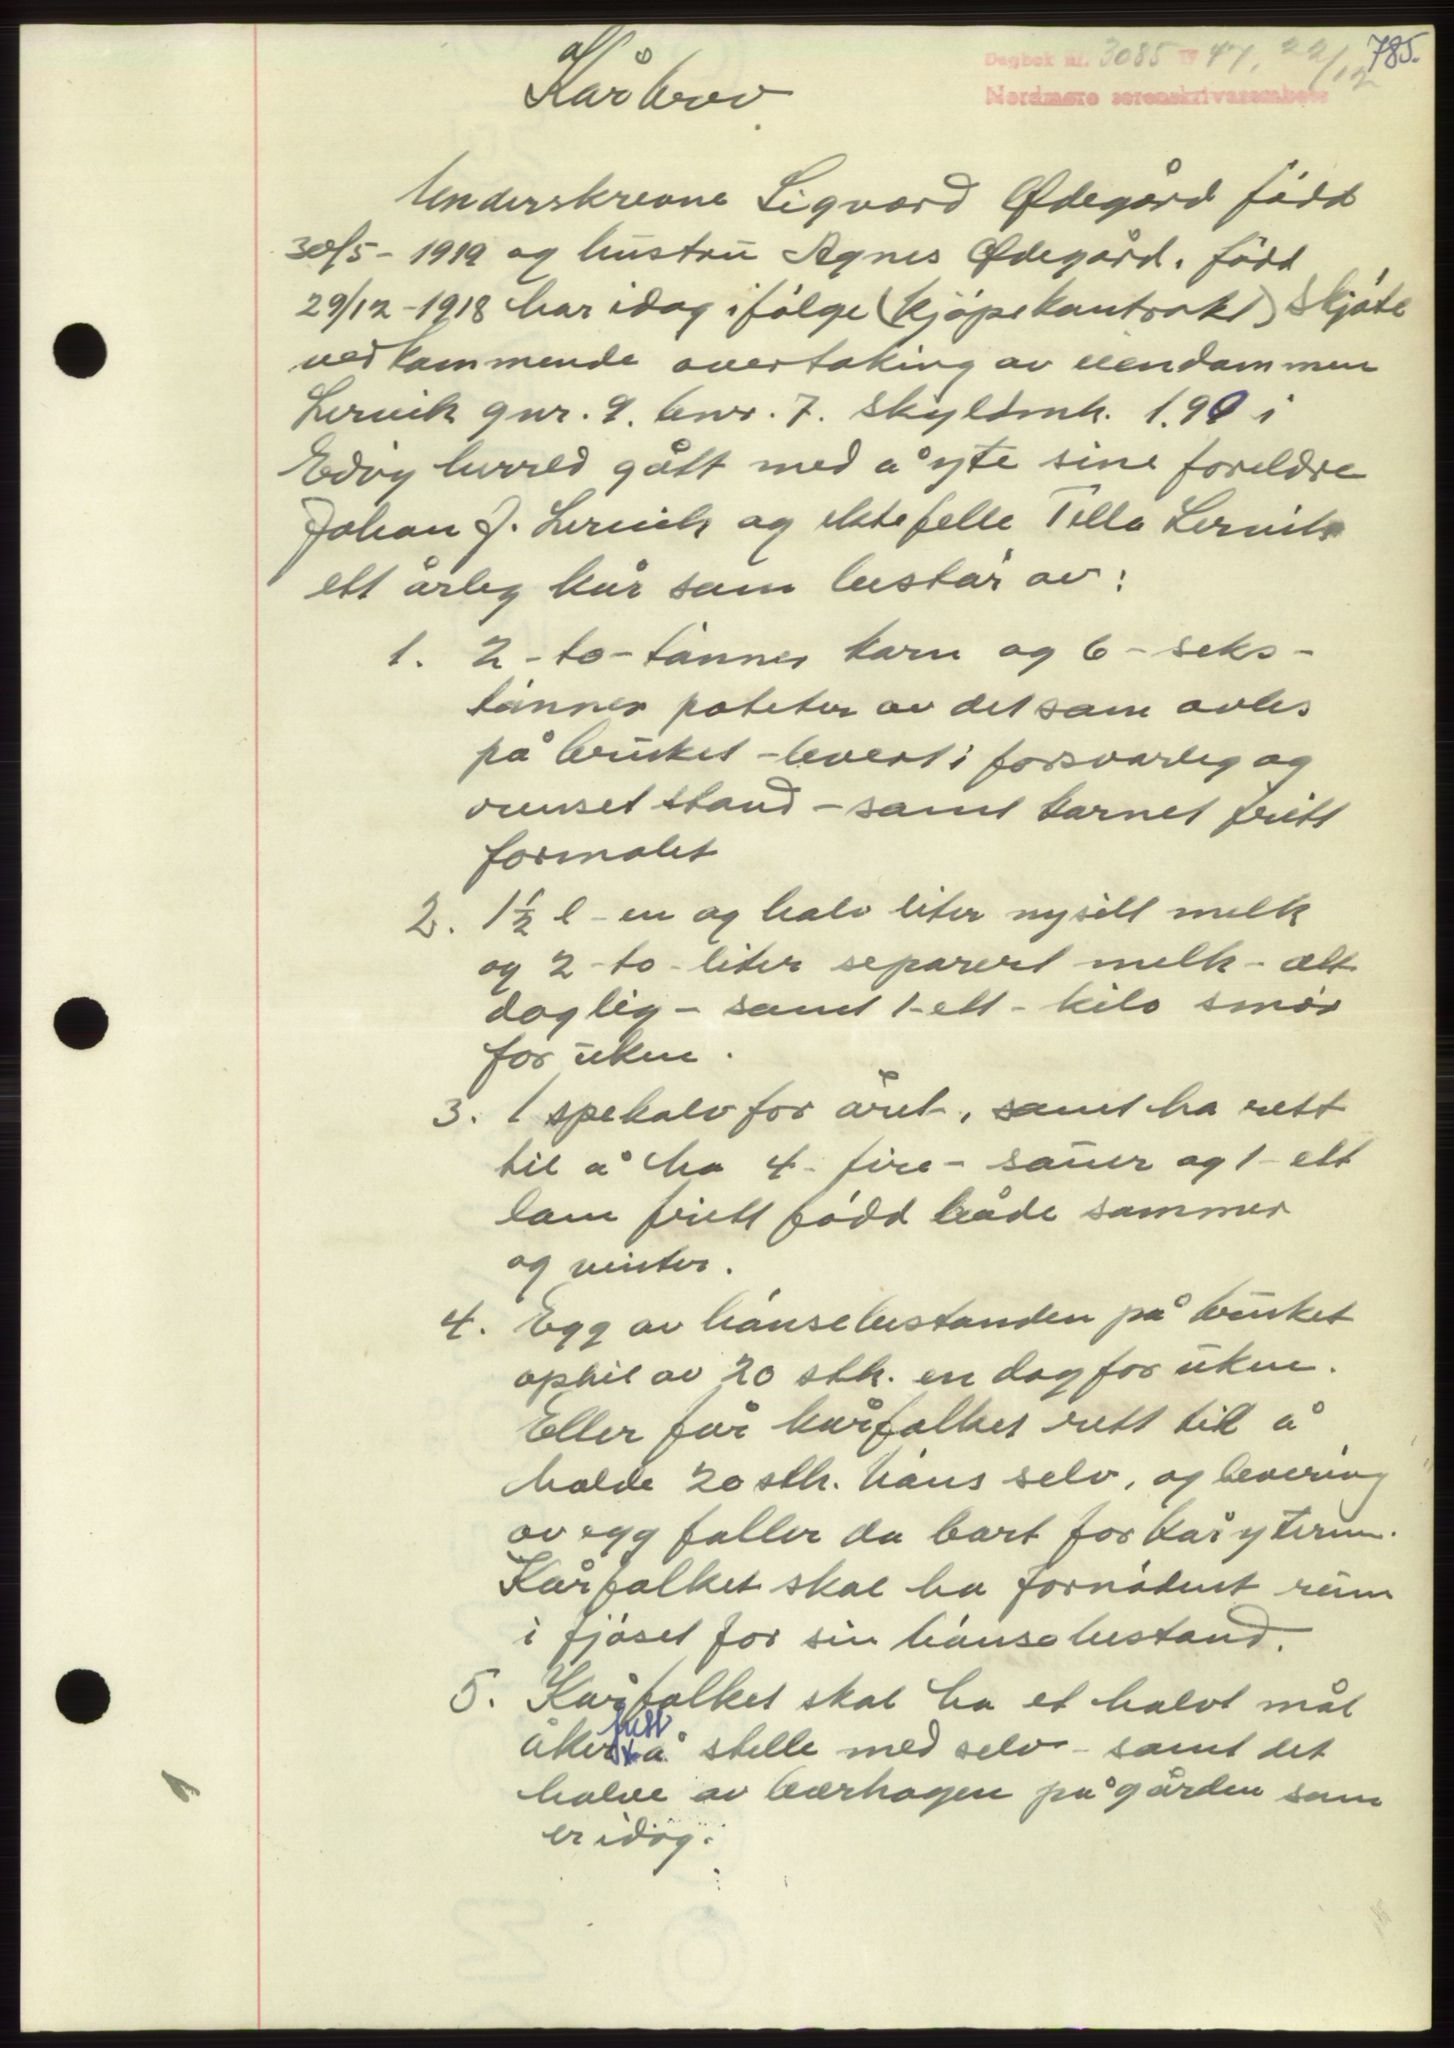 785.
Dagbok nr. 3085 19 47, 22/12
Nordmøre sorenskrivarembete
Kårbrev
Underskrevne Sigvard Ødegård född
30/5-1919 og hustru Agnes Ødegård. född
29/12-1918 har idag ifölge (kjöpekontrakt) skjöte
vedkommende overtaking av eiendommen
Lervik gnr. 9. bnr. 7. skyldmk. 1.90 i
Edöy herred gått med å yte sine foreldre
Johan J. Lervik og ektefelle Tella Lervik
ett årleg kår som består av:
1. 2-to-tönner korn og 6-seks-
tönner poteter av det som avles
på bruket - levert i forsvarleg og
renset stand - samt kornet fritt
formalet
2. 1½ l - en og halv liter nysilt melk
og 2-to-liter separert melk - alt
daglig - samt 1-ett-kilo smör
for uken.
3. 1 spekalv for året, samt ha rett
til å ha 4-fire-sauer og 1-ett
lam fritt född både sommer
og vinter.
4. Egg av hönsebestanden på bruket
ophil av 20 stk. en dag for uken.
Eller får kårfolket rett til å
holde 20 stk. höns selv, og levering
av egg faller da bort for kåryteren.
Kårfolket skal ha fornödent rum
i fjöset for sin hönsebestand.
5. Kårfolket skal ha et halvt mål
åker å stelle med selv - samt det
halve av bærhagen på gården som
er idag.